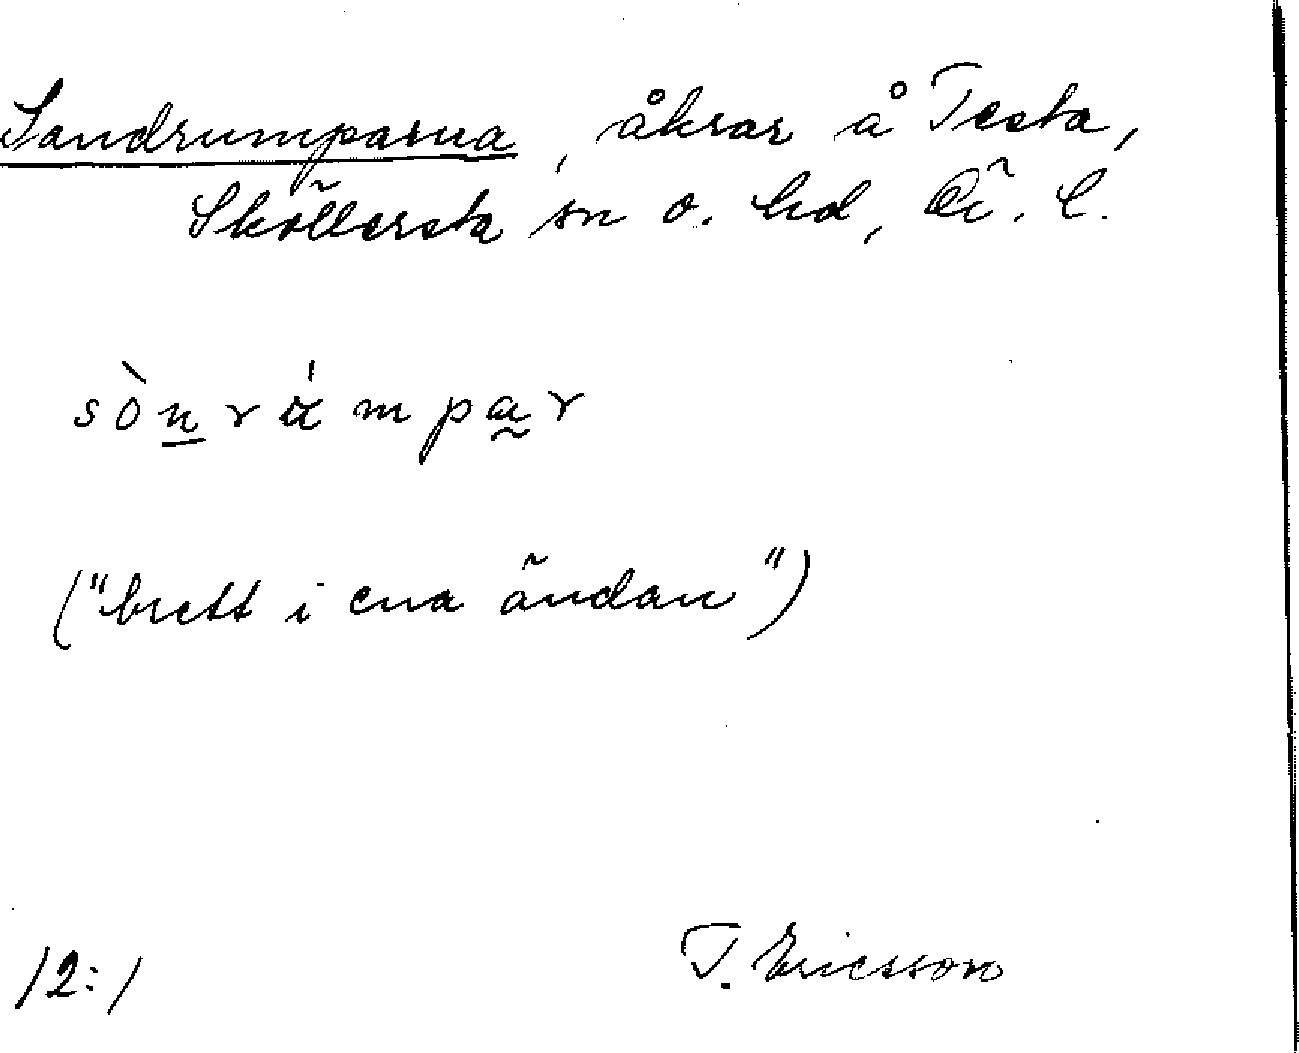 Sandrumparna, åkrar å Testa,
Sköllersta sn o. hd, Ör. l.
sònrámpar
("brett i ena ändan")
12:1
T. Ericsson